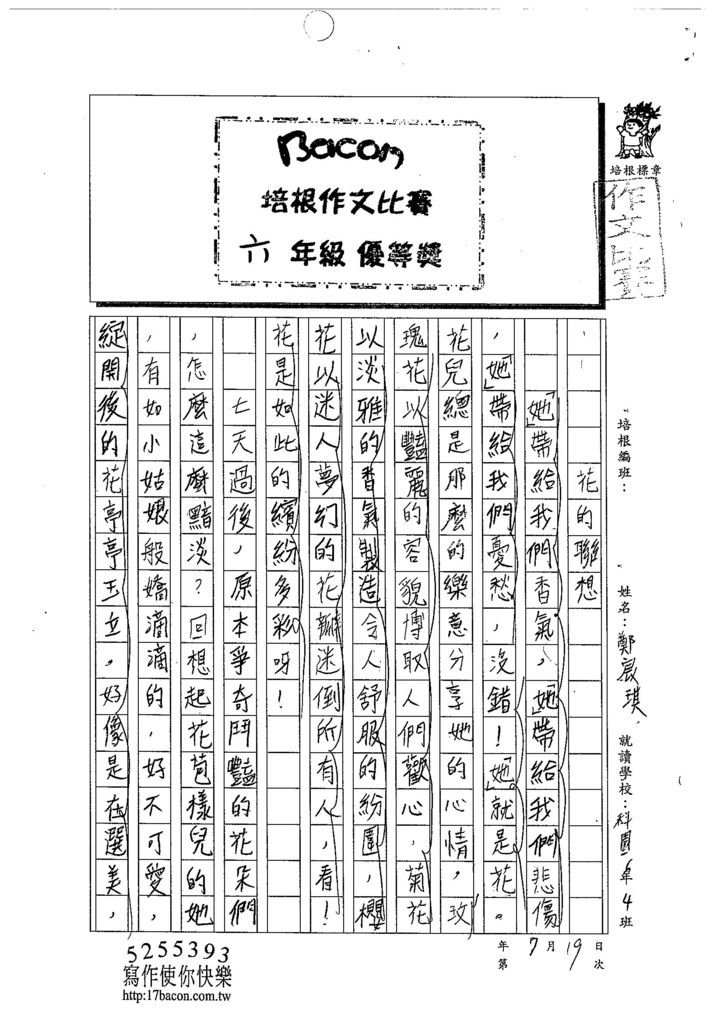 Bacon
培根作文比賽
六 年級 優等獎
培根標章
作文比賽
培根編班：
姓名：鄭宸琪
就讀學校：科園 年4班
年7月19日
第 次
花的聯想
「她」帶給我們香氣，「她」帶給我們悲傷
，「她」帶給我們憂愁，沒錯！「她」就是花。
花兒總是那麼的樂意分享她的心情，玫
瑰花以豔麗的容貌博取人們歡心，菊花
以淡雅的香氣製造令人舒服的紛圍，櫻
花以迷人夢幻的花瓣迷倒所有人，看！
花是如此的繽紛多彩呀！
七天過後，原本爭奇鬥豔的花朵們
，怎麼這麼黯淡？回想起花苞樣兒的她
，有如小姑娘般嬌滴滴的，好不可愛，
綻開後的花亭亭玉立，好像是在選美，
5255393
寫作使你快樂
http:17bacon.com.tw